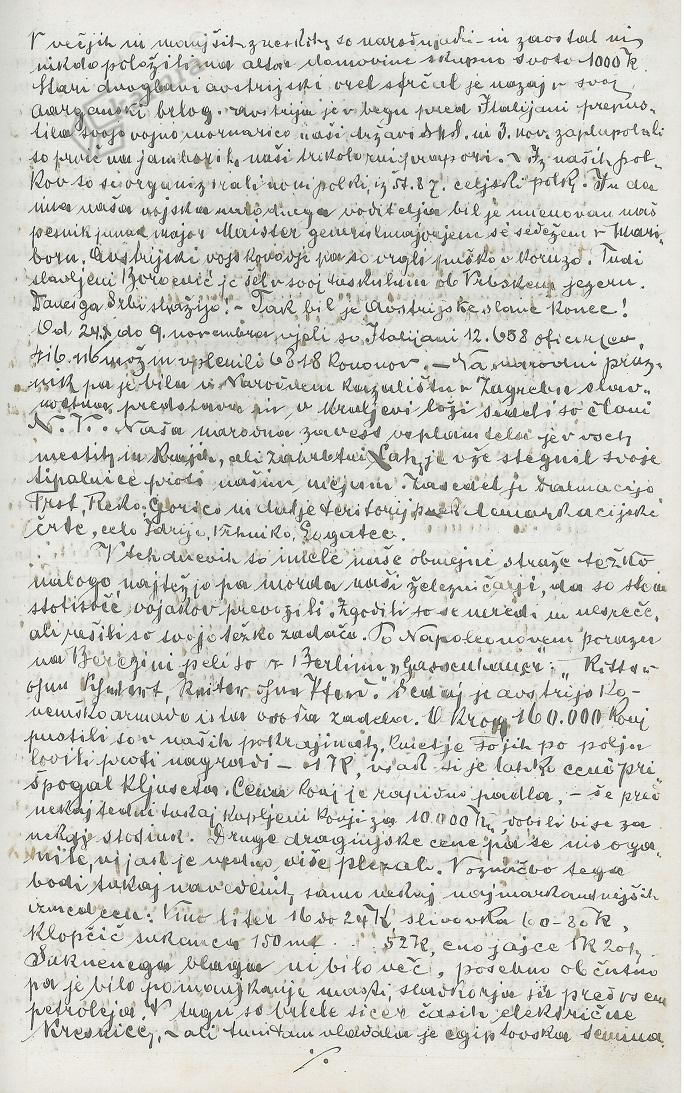 V večjih in manjših zneskih so narasli - in zaostal ni
nikdo položiti na altar domovine skupno svoto 1000 K.
Stari dvoglavi avstrijski orel strčal je nazaj v svoj
aargauski brlog. Avstrija je v begu pred Italijani prepus-
tila svojo vojno mornarico naši državi SHS. in 3. nov. zaplapolali
so prvič na jamborih naši trikolorni prapori. - Iz naših pol-
kov so se organizirali novi polki, iz št. 87. celjski polk.
naša vojska narodnega voditelja bil je imenovan naš
pesnik major Maister generalmajorjem se sedežem v Mari-
boru. Avstrijski vojskovodje pa so vrgli puško v koruzo. Tudi
slavljeni Boroević je šel v svoj tuskulum ob Vrbskem jezeru.
Danes ga Srbi stražijo! - Tak bil je Avstrijske slave konec!
Od 24. do 9. novembra ujeli so Italijani 12.658 oficirjev,
416.116 mož in vplenili 6818 kononov. - Na narodni praz-
nik pa je bila v Narodnem kazalištu v Zagrebu slav-
nostna predstava in v kraljevi loži sedeli so člani
N. V. Naša narodna zavest vsplamtela je v vseh
mestih in krajih, ali zahrbtni Lah je vže stegnil svoje
tipalnice proti našim mejam. Zasedel je Dalmacijo
Trst, Reko, Gorico in dalje teritorij demarkacijske
črte, celo Idrijo, Vrhniko, Logatec.
V teh dnevih so imele naše obmejne straže težko
nalogo, najtežjo pa morda naši železničarji, da so
stotisoče vojakov prevozili. Zgodili so se neredi in nesreče,
ali rešili so svojo težko zadačo. Po Napoleonovem porazu
na Berezini peli so v Berlinu „Gassenhauer“: „Ritter
ohne Schwert, Reiter ohne Pferd.“ Sedaj je avstrijsko
nemško armado ista osoda zadela. Okrog 160.000 konj
pustili so v naših pokrajinah. Kmetje so jih po polju
lovili proti nagradi - 1 K, vsak si je lahko ceno pri-
špogal kljuseta. Cena konj je rapidno padla, - še pred
nekaj tedni tukaj kupljeni konji za 10.000 K, dobili bi se za
nekaj stotink. Druge draginjske cene pa se niso ga-
nile, vijak je vedno više plezal. V označbo tega
bodi tukaj navedenih samo nekaj najmarkantnejših
cen: Vino liter 16 do 24 K, slivovka 60-80 K,
klopčič sukanca 150 mt . . . 52 K, eno jajce 1 K 20 h.
Suknenega blaga ni bilo več, posebno občutno
pa je bilo pomanjkanje masti, sladkorja in predvsem
petroleja. V trgu so brlele sicer časih električne
kresnice, - ali tudi tam vladala je egiptovska temina
./.